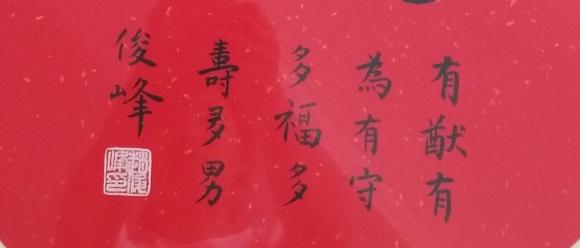 有猷有
為有守
多福多
壽多男
俊峰